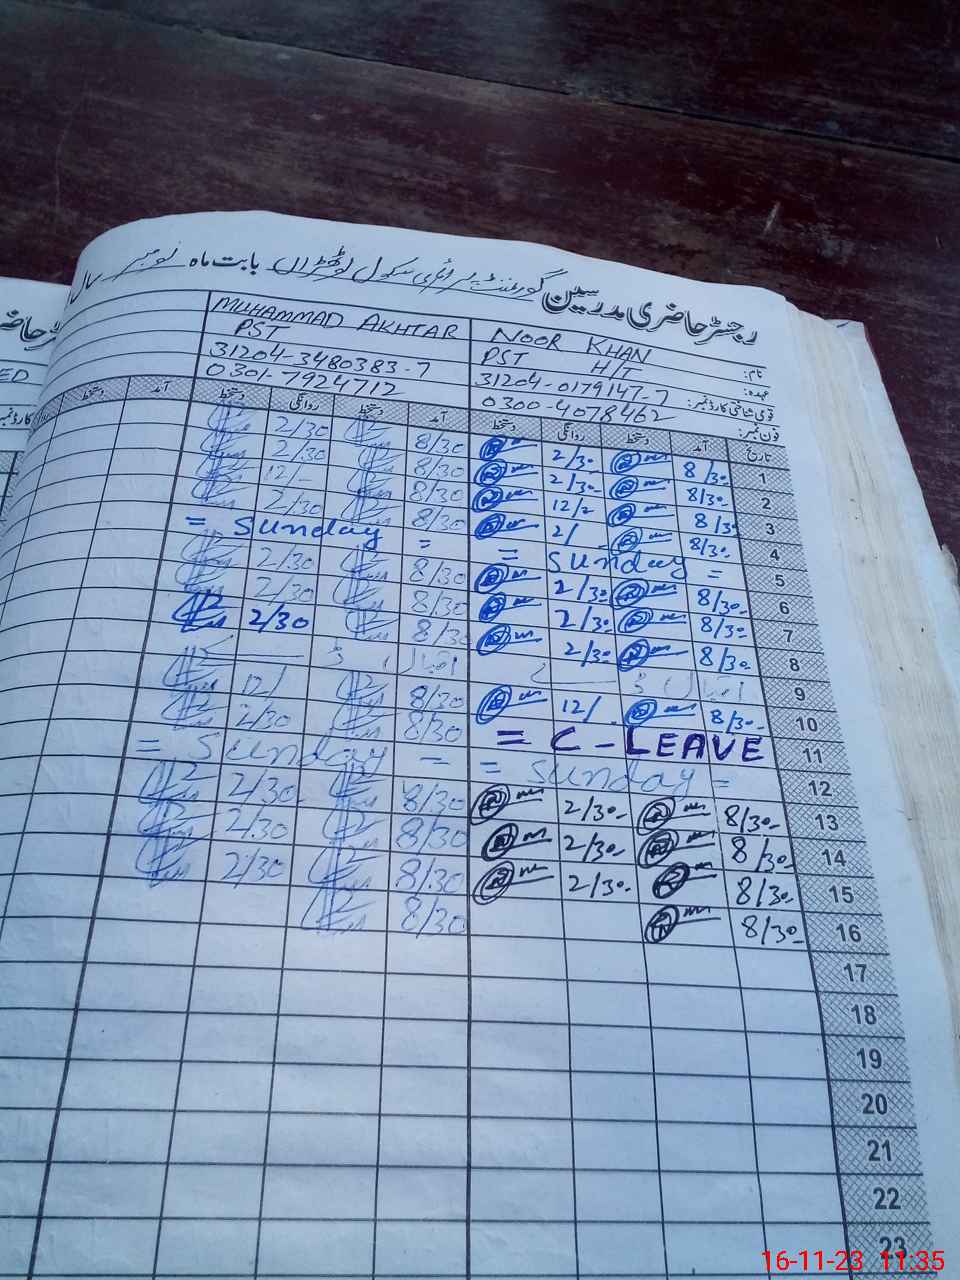 رجسٹر حاضری مدرسین گورنمنٹ پرائمری سکول بابت ماہ نومبر سال
نام: NOOR KHAN MUHAMMAD AKHTAR
عہدہ: PST H/T PST
قومی شناختی کارڈ نمبر: 31204-0179147-7 31204-3480383-7
فون نمبر: 0300-4078462 0301-7924712
تاریخ آمد دستخط روانگی دستخط آمد دستخط روانگی دستخط آمد دستخط
1 8/30 2/30 8/30 2/30
2 8/30 2/30 8/30 2/30
3 8/30 12/ 8/30 12/-
4 8/30 2/ 8/30 2/30
5 = Sunday = = Sunday =
6 8/30 2/30 8/30 2/30
7 8/30 2/30 8/30 2/30
8 8/30 2/30 8/30 2/30
9 اقبال ڈے اقبال ڈے
10 8/30 12/ 8/30 12/
11 = C-LEAVE 8/30 2/30
12 = Sunday = = Sunday =
13 8/30 2/30 8/30 2/30
14 8/30 2/30 8/30 2/30
15 8/30 2/30 8/30 2/30
16 8/30 8/30
17
18
19
20
21
22
23
ED
16-11-23 11:35